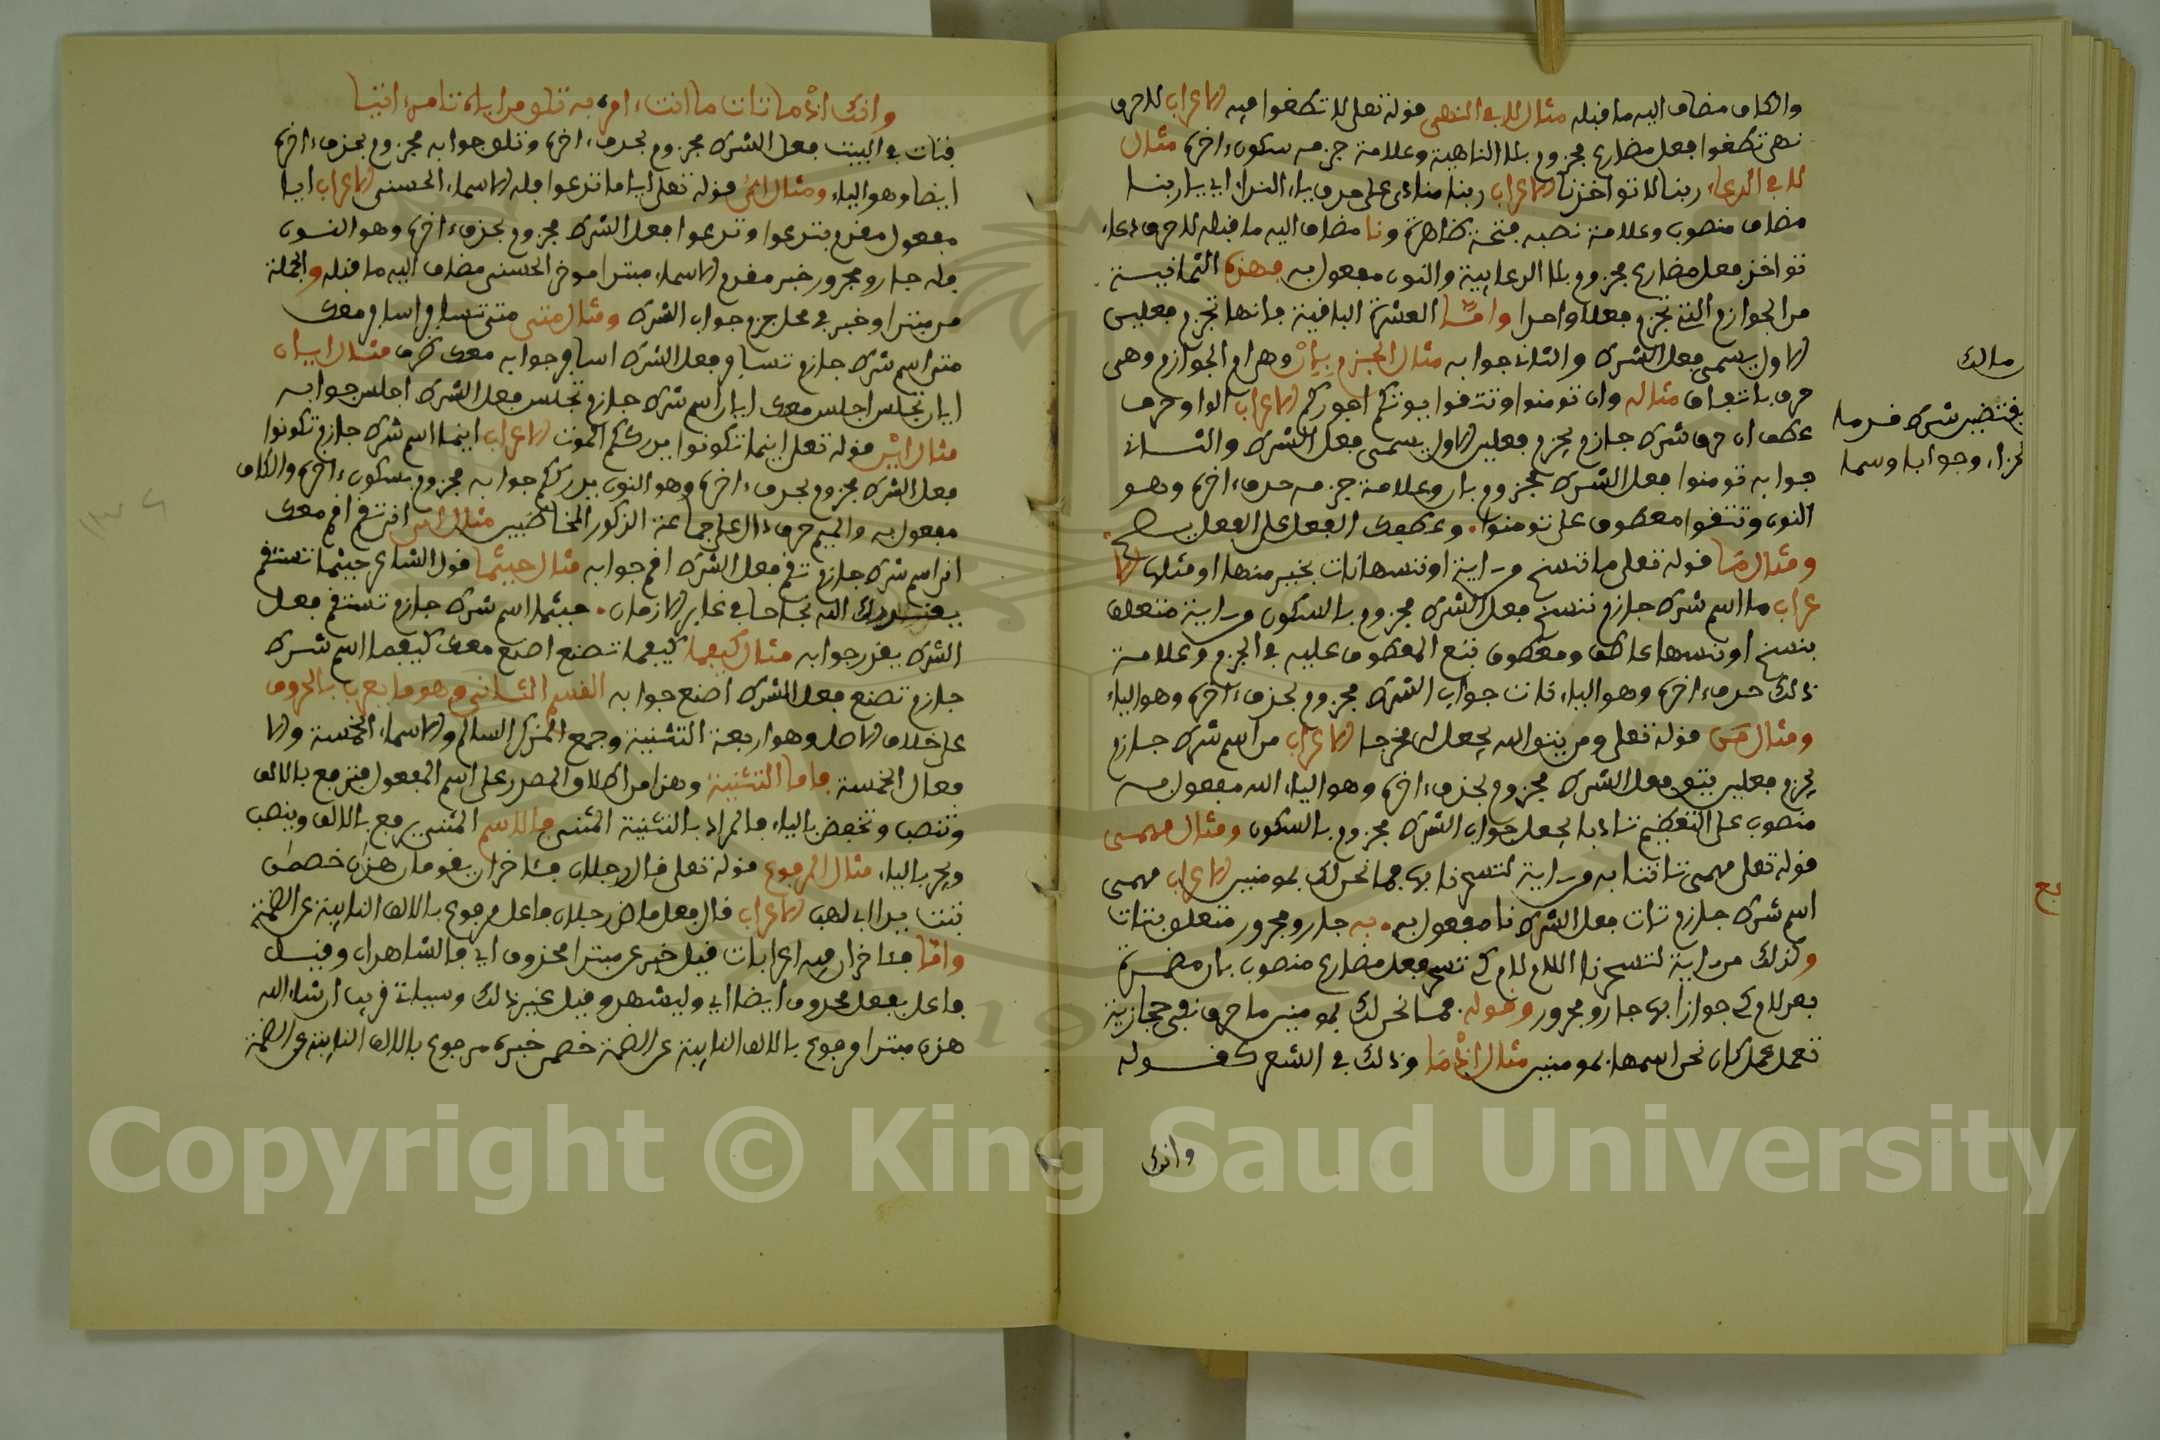 والكاف مضاف اليه ما قبله مثال لا في النهي قوله تعلى لا تطغوا فيه الاعراب لا حرف
نهي تطغوا فعل مضارع مجزوم بلا الناهية وعلامة جزمه سكون ءاخره مثال
لا في الدعاء ربنا لا تواخذنا الاعراب ربنا منادى على حذف ياء النداء اي يا ربنا
مضاف منصوب وعلامة نصبه فتحة ظاهرة ونا مضاف اليه ما قبله لا حرف دعاء
تواخذ فعل مضارع مجزوم بلا الدعايية والنون مفعول به فهذه الثمانيية
من الجوازم التي تجزم فعلا واحدا وامّا العشرة الباقية فانها تجزم فعلين
الاول يسمى فعل الشرط والثاني جوابه مثال الجزم بإن وهي ام الجوازم وهي
حرف باتفاق مثاله وان تومنوا وتتقوا يوتكم اجوركم الاعراب الواو حرف
عطف ان حرف شرط جازم يجزم فعلين الاول يسمى فعل الشرط والثاني
جوابه تومنوا فعل الشرط مجزوم بان وعلامة جزمه حذف ءاخره وهو
النون وتتقوا معطوف على تومنوا. وعطفك الفعل على الفعل يصح
ومثال مَا قوله تعلى ما ننسخ من ءاية او ننسها نات بخير منها او مثلها الا
عراب ما اسم شرط جازم ننسخ فعل الشرط مجزوم بالسكون من ءاية متعلق
بننسخ او ننسها عاطف ومعطوف يتبع المعطوف عليه في الجزم وعلامة
ذلك حذف ءاخره وهو الياء نات جواب الشرط مجزوم بحذف ءاخره وهو الياء
ومثال مَن قوله تعلى ومن يتق الله يجعل له مخرجا الاعراب من اسم شرط جازم
يجزم فعلين يتق فعل الشرط مجزوم بحذف ءاخره وهو الياء الله مفعول به
منصوب على التعظيم تادبا يجعل جواب الشرط مجزوم بالسكون ومثال مهمى
قوله تعلى مهمى تاتنا به من ءاية لتسحرنا بها فما نحن لك بمومنين الاعراب مهمى
اسم شرط جازم تات فعل الشرط نا مفعول به. به جار ومجرور متعلق بتات
وكذلك من ءاية لتسحرنا اللام لام كي تسحر فعل مضارع منصوب بان مضمرة
بعد لام كي جوازا بها جار ومجرور وقوله فما نحن لك بمومنين ما حرف نفي حجازية
تعمل عمل كان نحن اسمها بمومنين مثال إذْمَا وذلك في الشعر كقوله
وانك
مالك
يقتضين شرط قدما
الجزاء وجوابا وسما
بع
وانك اذْما تات ما انت ءامر به تلف من اياه تامر ءاتيا
فتات في البيت فعل الشرط مجزوم بحذف ءاخره وتلف جوابه مجزوم بحذف ءاخره
ايضا وهو الياء ومثال ايّ قوله تعلى ايا ما تدعوا فله الاسماء الحسنى الاعراب ايا
مفعول مقدم بتدعوا وتدعوا فعل الشرط مجزوم بحذف ءاخره وهو النون
فله جار ومجرور خبر مقدم الاسماء مبتدا موخر الحسنى مضاف اليه ما قبله والجملة
من مبتدا وخبر في محل جزم جواب الشرط ومثال متى متى تسافر اسافر معك
متى اسم شرط جازم تسافر فعل الشرط اسافر جوابه معك ظرف مثال ايان
ايان تجلس اجلس معك ايان اسم شرط جازم تجلس فعل الشرط اجلس جوابه
مثال اين قوله تعلى اينما تكونوا يدرككم الموت الاعراب اينما اسم شرط جازم تكونوا
فعل الشرط مجزوم بحذف ءاخره وهو النون يدرككم جوابه مجزوم بسكون ءاخره والكاف
مفعول به والميم حرف دال على جماعة الذكور المخاطبين مثال انى انى تقم اقم معك
انى اسم شرط جازم تقم فعل الشرط اقم جوابه مثال حيثما قول الشاعر حيثما تستقم
يقدر لك الله نجاحا في غابر الازمان. حيثما اسم شرط جازم تستقم فعل
الشرط يقدر جوابه مثال كيفما كيفما تصنع اصنع معك كيفما اسم شرط
جازم تصنع فعل الشرط اصنع جوابه القسم الثاني وهو ما يعرب بالحروف
على خلاف الاصل وهو اربعة التثنية وجمع المذكر السالم والاسماء الخمسة والا
فعال الخمسة فاما التثنية وهذا من اطلاق المصدر على اسم المفعول فترفع بالالف
وتنصب وتخفض بالياء فالمراد بالتثنية المثنى فالاسم المثنى يرفع بالالف وينصب
ويجر بالياء مثال المرفوع قوله تعلى قال رجلان فئاخران يقومان هذان خصمن
تبت يدا ابي لهب الاعراب قال فعل ماض رجلان فاعل مرفوع بالالف النايبة عن الضمة
وامّا فئاخران فيه اعرابات قيل خبر عن مبتدا محذوف اي فالشاهدان وقيل
فاعل بفعل محذوف ايضا اي وليشهد وقيل غير ذلك وسياتي قريبا ان شاء الله
هذن مبتدا مرفوع بالالف النايبة عن الضمة خصمن خبره مرفوع بالالف النايبة عن الضمة
Copyright © King Saud University